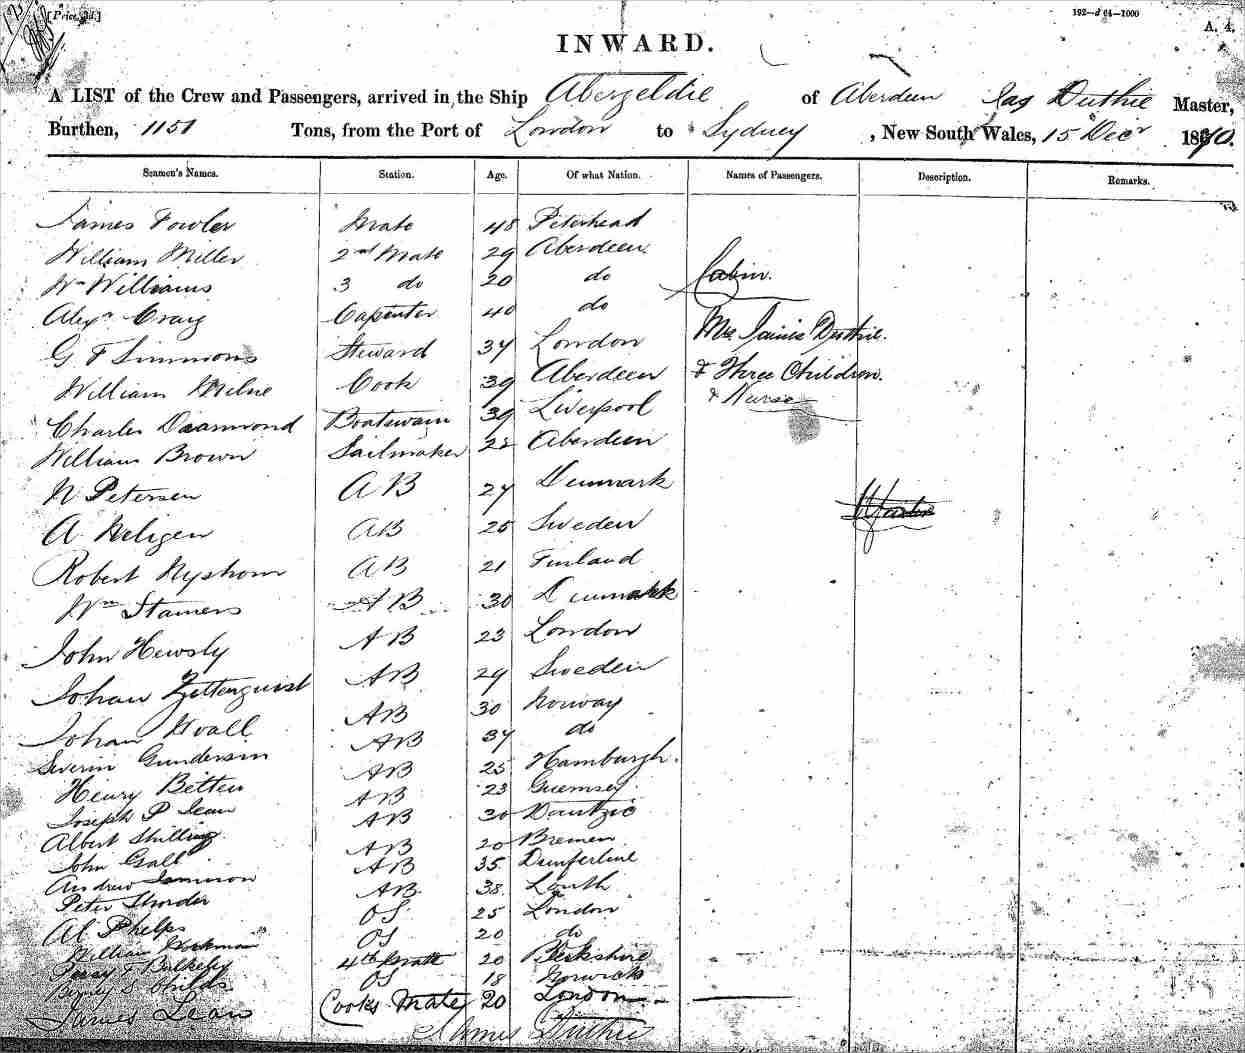 [Price, 3d.]
192—d 64—1000
A. 4.
INWARD.
A LIST of the Crew and Passengers, arrived in the Ship Abergeldie of Aberdeen Jas Duthie Master,
Burthen, 1151 Tons, from the Port of London to Sydney, New South Wales, 15 Decr 1870.
Seamen's Names. Station. Age. Of what Nation. Names of Passengers. Description. Remarks.
James Fowler Mate 48 Peterhead
William Miller 2nd Mate 29 Aberdeen
Wm Williams 3 do 20 do Cabin.
Alexr Craig Capenter 40 do
G F Simmons Steward 34 London Mrs Jamis Duthie.
William Milne Cook 39 Aberdeen & Three Children.
& Nurse
Charles Diammond Boatswain 39 Liverpool
William Brown Sailmaker 22 Aberdeen
N Petersen AB 27 Denmark
A Heligen AB 25 Sweden
Robert Nyshom AB 21 Finland
Wm Stamers AB 30 Denmark
John Hewsly AB 23 London
Johan Zetterquist AB 29 Sweden
Johan Hvall AB 30 Norway
Severin Gundersin AB 34 do
Henry Betten AB 25 Hamburgh.
Joseph P Lean AB 23 Guernsey
Albert Shilling AB 30 Dantzic
John Gall AB 20 Bremen
Andrew Jamieson AB 35 Dumferline
Peter Thorder AB 38 Louth
Al Phelps OS 25 London
William Workman OS 20 do
Percy F Bulkeley 4th Mate 20 Berkshire
S Childs OS 18 Norwich
James Lean Cooks Mate 20 London
James Duthie